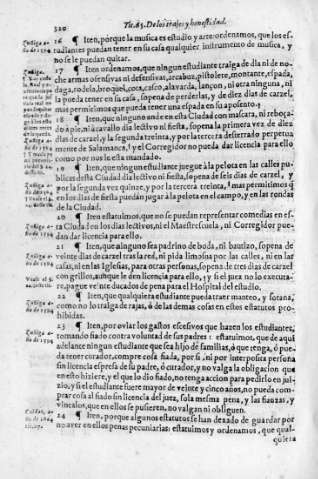 320
Tit.65. De los trajes y honestidad.
16 ¶ Iten, porque la musica es estudio y arte: ordenamos, que los es-
tudiantes puedan tener en su casa qualquier instrumento de musica, y
no se le puedan quitar.
17 ¶ Iten ordenamos, que ningun estudiante traiga de dia ni de no-
che armas ofensivas ni defensivas, arcabuz, pistolete, montante, espada,
daga, rodela, broquel, cota, casco, alavarda, lançon, ni otra ninguna, ni
la pueda tener en la casa, sopena de perderlas, y de diez dias de carzel,
mas permitimos que pueda tener una espada en su aposento.
18 ¶ Iten, que ninguno ande en esta Ciudad con mascara, ni reboça-
do à pie, ni a cavallo dia lectivo ni fiesta, sopena la primera vez de diez
dias de carzel, y la segunda treinta, y por la tercera desterrado perpetua
mente de Salamanca, i el Corregidor no pueda dar licencia para ello
como por nos le esta mandado.
19 ¶ Iten, que ningun estudiante juegue à la pelota en las calles pu-
blicas desta Ciudad dia lectivo ni fiesta, sopena de seis dias de carzel, y
por la segunda vez quinze, y por la tercera treinta, i mas permitimos q̃
en los dias de fiesta puedan jugar a la pelota en el campo, y en las rondas
de la Ciudad.
20 ¶ Iten estatuimos, que no se puedan representar comedias en es-
ta Ciudad en los dias lectivos, ni el Maestrescuela, ni Corregidor pue-
dan dar licencia para ello.
21 ¶ Iten, que ninguno sea padrino de boda, ni bautizo, sopena de
veinte dias de carzel tras la red, ni pida limosna por las calles, ni en las
casas, ni en las Iglesias, para otras personas, sopena de tres dias de carzel
con grillos, aunque le den licencia para ello, y si el juez no lo executa-
re, pague veinte ducados de pena para el Hospital del estudio.
22 ¶ Iten, que qualquiera estudiante pueda traer manteo, y sotana,
como no lo traiga de rajas, ò de las demas cosas en estos estatutos pro-
hibidas.
23 ¶ Iten, por ovlar los gastos excesivos que hazen los estudiantes,
tomando fiado contra voluntad de sus padres: estatuimos, que de aqui
adelante ningun estudiante que sea hijo de familias, ò que tenga, ò pue-
da tener curador, compre cosa fiada, por si, ni por interposita persona
sin licencia espresa de su padre, ò curador, y no valga la obligacion que
en esto hiziere, y el que lo dio fiado, no tenga accion para pedirlo en jui-
zio, y si el estudiante fuere mayor de veinte y cinco años, no pueda com-
prar cosa al fiado sin licencia del juez, so la mesma pena, y las fianzas, y
vinculos, que en ellos se pusieren, no valgan ni obliguen.
24 ¶ Iten, porque algunos estatutos se han dexado de guardar por
no aver en ellos penas pecuniarias: estatuimos y ordenamos, que qual-
quiera